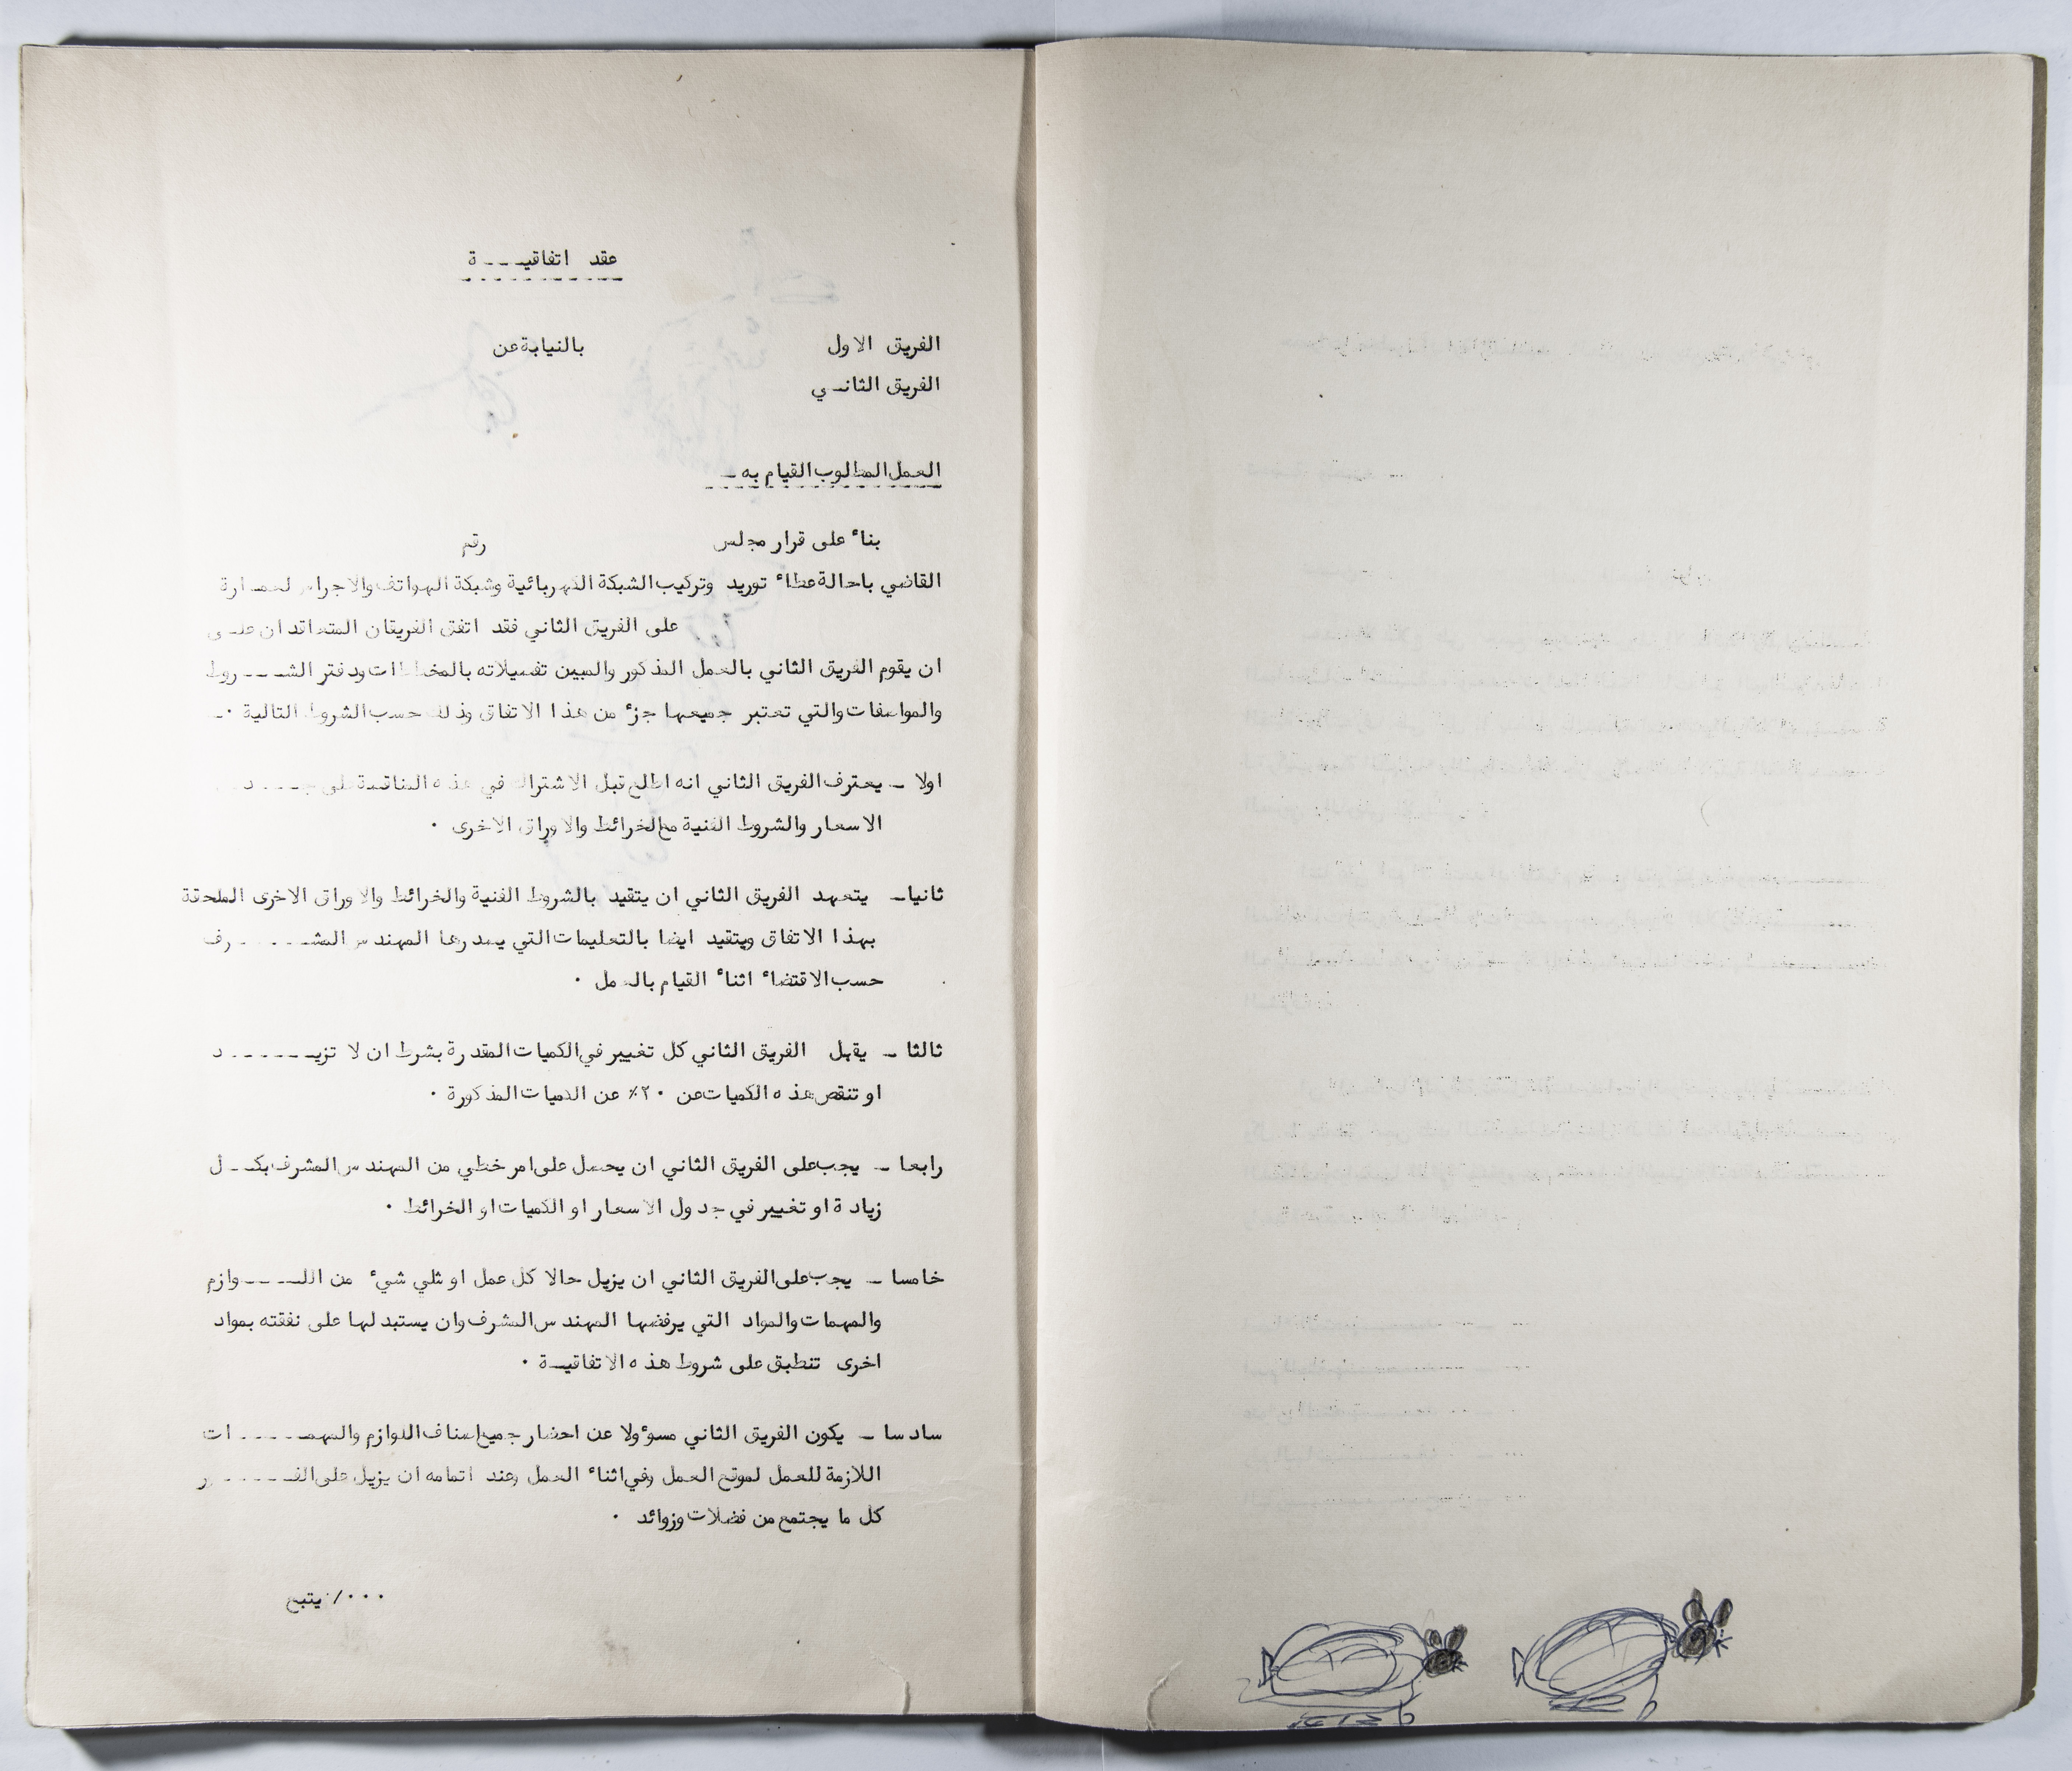 عقد اتفاقيـــة
الفريق الاول بالنيابة عن
الفريق الثانـي
العمل المطلوب القيام به ـ
بناء على قرار مجلس رقم
القاضي باحالة عطاء توريد وتركيب الشبكة الكهربائية وشبكة الهواتف والاجراس لعمـارة
على الفريق الثاني فقد اتفق الفريقان المتعاقدان علـى
ان يقوم الفريق الثاني بالعمل المذكور والمبين تفصيلاته بالمخططات ودفتر الشـــروط
والمواصفات والتي تعتبر جميعها جزء من هذا الاتفاق وذلك حسب الشروط التالية ٠ـ
اولا ـ يعترف الفريق الثاني انه اطلع قبل الاشتراك في هذه المناقصة على جــــد
الاسعار والشروط الفنية مع الخرائط والاوراق الاخرى ٠
ثانيا ـ يتعهد الفريق الثاني ان يتقيد بالشروط الفنية والخرائط والاوراق الاخرى الملحقة
بهذا الاتفاق ويتقيد ايضا بالتعليمات التي يصدرها المهندس المشـــــرف
حسب الاقتضاء اثناء القيام بالعمل ٠
ثالثا ـ يقبل الفريق الثاني كل تغيير في الكميات المقدرة بشرط ان لا تزيـــــد
او تنقص هذه الكميات عن ٢٠٪ عن الكميات المذكورة ٠
رابعا ـ يجب على الفريق الثاني ان يحصل على امر خطي من المهندس المشرف بكــل
زيادة او تغيير في جدول الاسعار او الكميات او الخرائط ٠
خامسا ـ يجب على الفريق الثاني ان يزيل حالا كل عمل او شيء من اللــــوازم
والمهمات والمواد التي يرفضها المهندس المشرف وان يستبدلها على نفقته بمواد
اخرى تنطبق على شروط هذه الاتفاقيـة ٠
سادسا ـ يكون الفريق الثاني مسوٴولا عن احضار جميع اصناف اللوازم والمهمـــــات
اللازمة للعمل لموقع العمل وفي اثناء العمل وعند اتمامه ان يزيل على الفـــــور
كل ما يجتمع من فضلات وزوائد ٠
٠٠٠/ يتبع